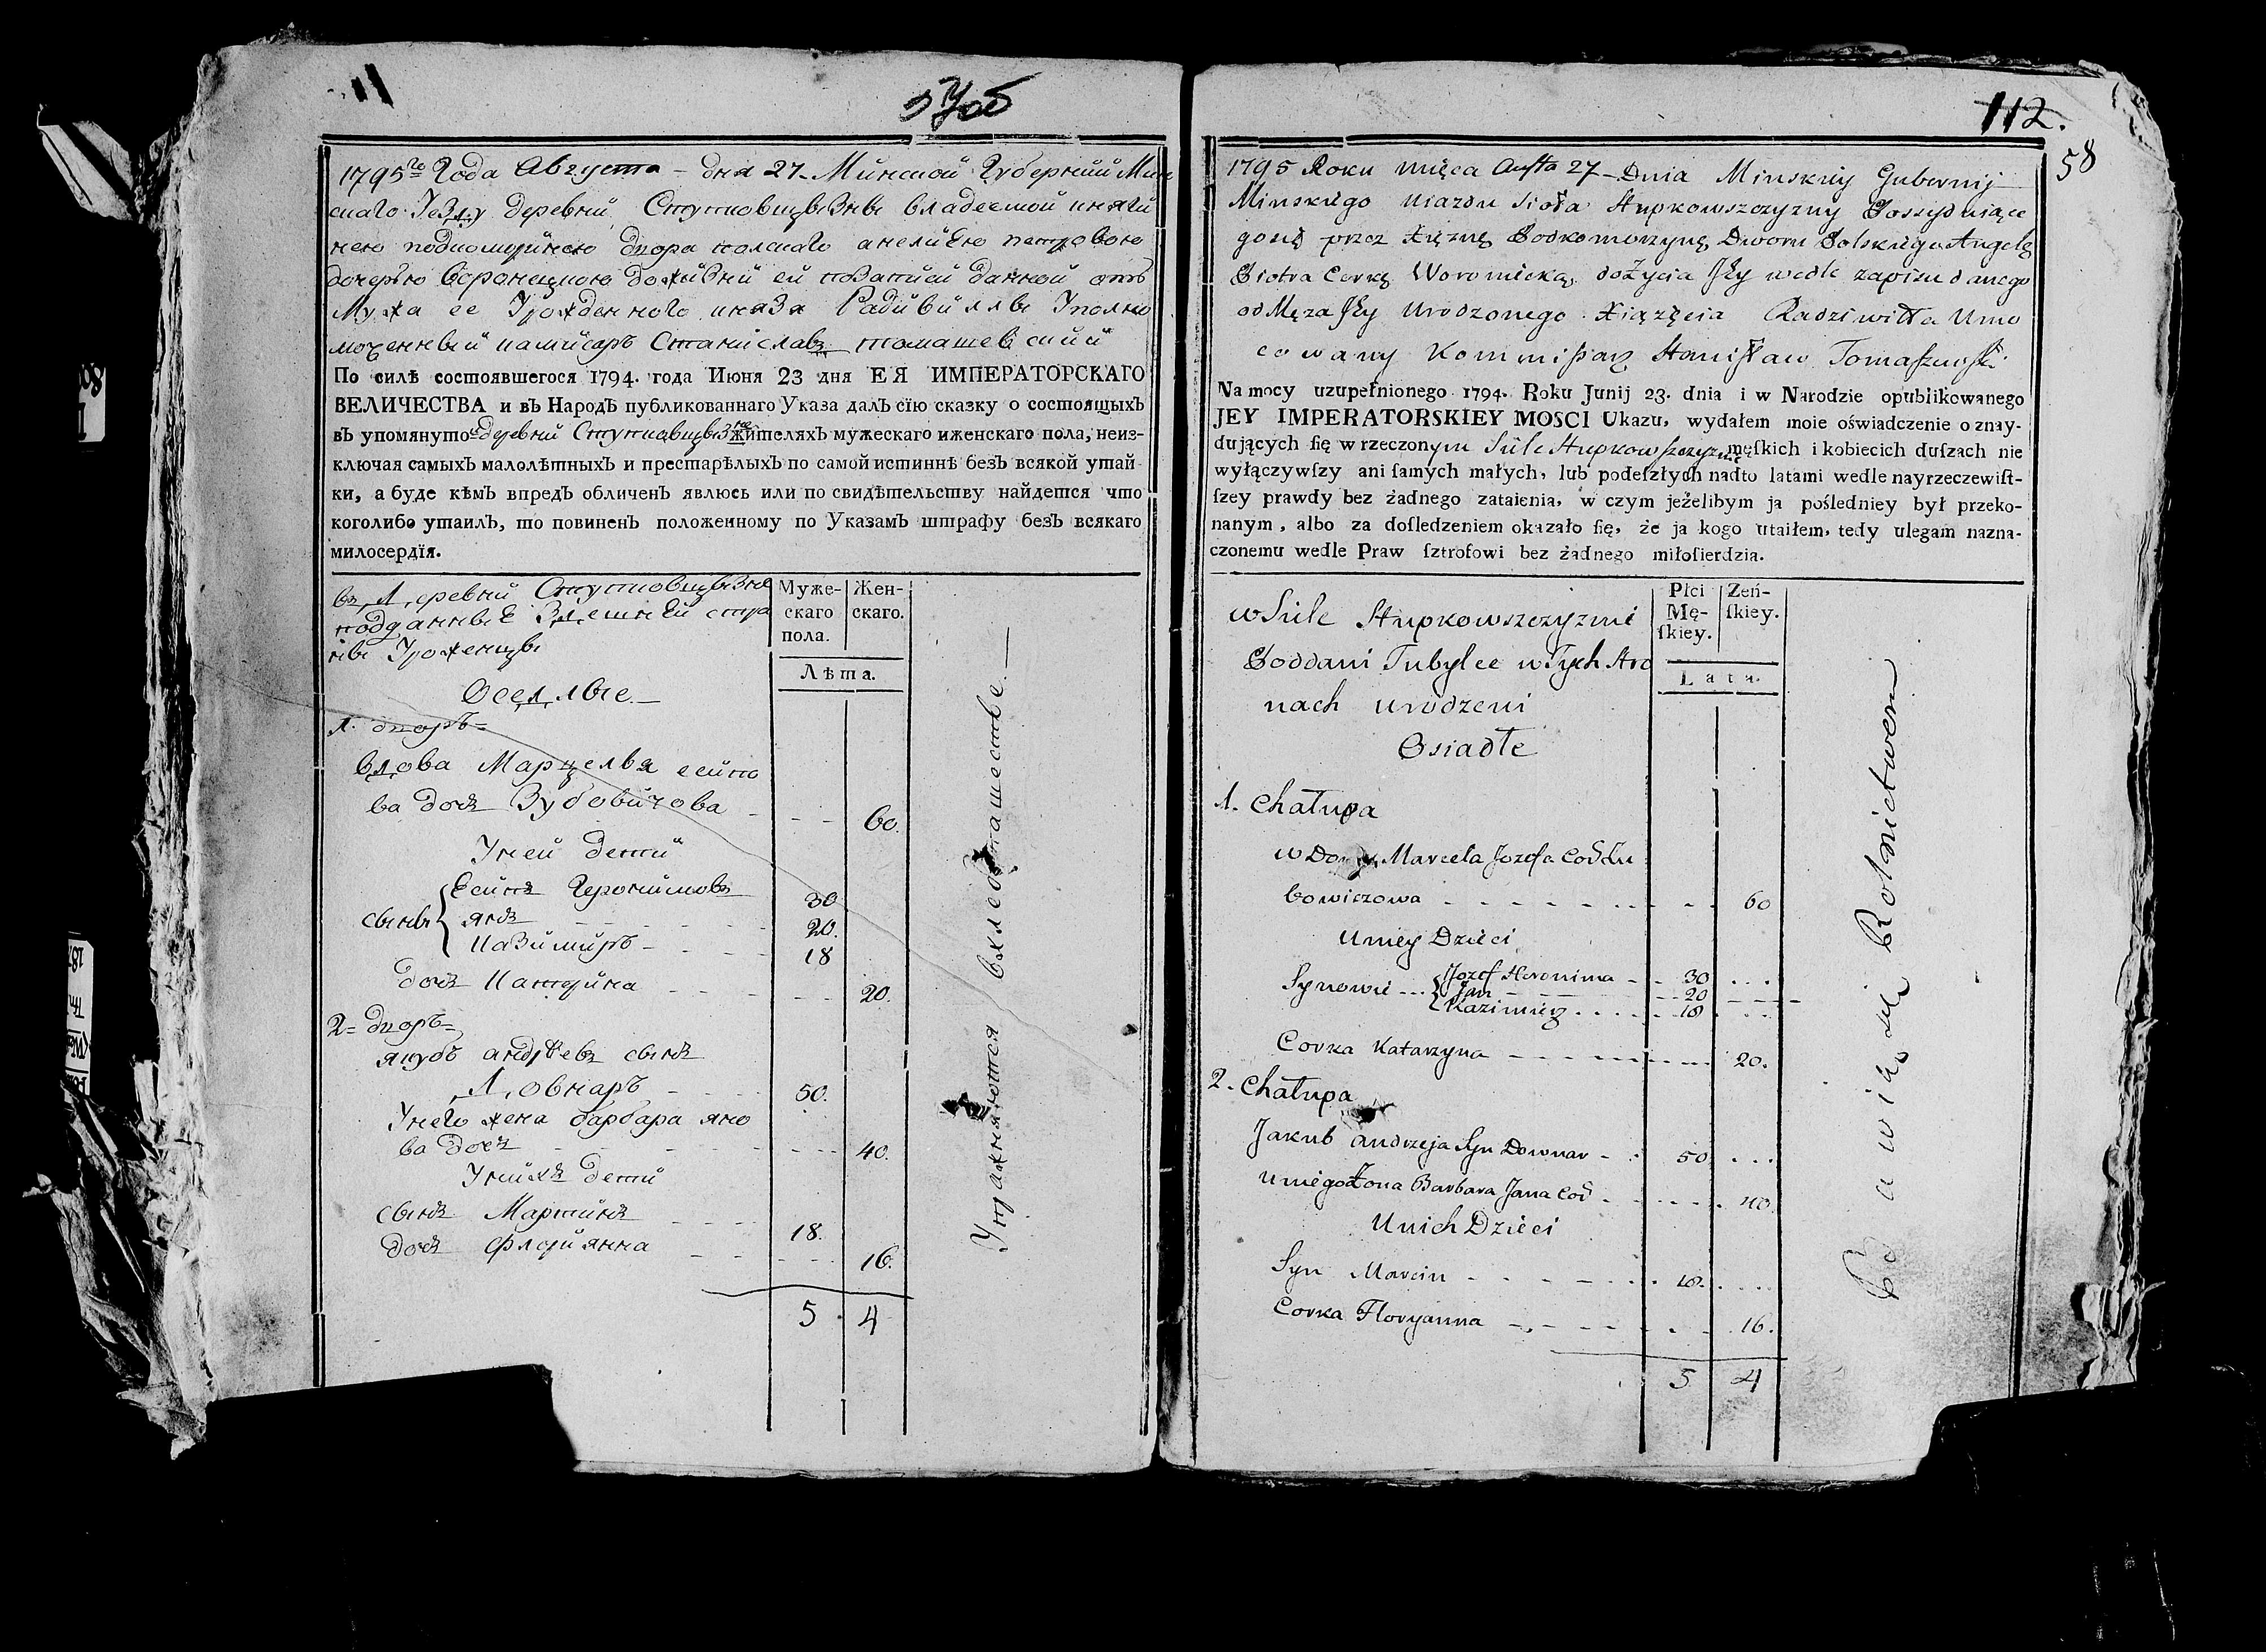 112.
58
1795го Года Августа – дня 27 – Минской Губерний Мин
скаго Уезду деревни Ступковщызны владеемой княги
нею подкоморинею двора полскаго анелиею петровою
дочерью Воронецкою дожывтний ей по записи данной отъ
Мужа ее Урожденного князя Радивиллы Уполно
моченный камисаръ Станиславъ томашевский
По силѣ состоявшегося 1794. года Июня 23 дня ЕЯ ИМПЕРАТОРСКАГО
ВЕЛИЧЕСТВА и въ Народѣ публикованнаго Указа далъ сїю сказку о состоящыхъ
въ упомянутой деревни Ступковщызне жителяхъ мужескаго иженскаго пола, неиз-
ключая самыхъ малолѣтныхъ и престарѣлыхъ по самой истиннѣ безъ всякой утай
ки, а буде кѣмъ впредь обличенъ явлюсь или по свидѣтельству найдется что
коголибо утаилъ, то повиненъ положенному по Указамъ штрафу безъ всякаго
милосердїя.
въ Деревни Ступковщызне
подданные Здешней стра
ны Уроженцы
Муже-
скаго
пола.
Жен-
скаго.
Лѣта.
Оседлые –
1. дворъ =
вдова Марцелья есипо
ва дочь Зубовичова – – – 60.
Уней дети
сыны { Есипъ Геронимовъ 30
янъ – – – 20.
казимиръ – – – 18
дочь катерина – – – 20.
2 = дворъ =
якубъ андреевъ сынъ
Довнаръ – – 50.
Унего жена барбара яно
ва дочь – – – 40.
Унихъ дети
сынъ Мартинъ – – 18.
дочь флорианна – – – 16.
5 . 4
Упражняются вхлебопашестве –
1795 Roku mięca Augta 27 – Dnia Minskiey Gubernij
Minskiego Uiazdu Sioła Stupkowszczyzny Possyduiące
gosię przez Xiężnę Podkomorzynę Dworu Polskiego Angelę
Piotra Corkę Woroniecką do Życia Jey wedle zapisu danego
od Męza Jey Urodzonego Xiążęcia Radziwiłła Umo
cowany Kommissarz Stanisław Tomaszewski.
Na mocy uzupełnionego 1794. Roku Junij 23. dnia i w Narodzie opublikowanego
JEY IMPERATORSKIEY MOSCI Ukazu, wydałem moie oświadczenie o znay-
dujących ſię w rzeczonym Siele Stupkowszczyznie męſkich i kobiecich duſzach nie
wyłączywſzy ani ſamych małych, lub podeſzłych nadto latami wedle nayrzeczewiſt-
ſzey prawdy bez żadnego zataienia, w czym jeżelibym ja poſledniey był przeko-
nanym, albo za doſledzeniem okazało ſię, że ja kogo utaiłem, tedy ulegam nazna-
czonemu wedle Praw ſztrofowi bez żadnego miłoſierdzia.
w Siele Stupkowszczyznie
Poddani Tubylce w Tych Stro
nach urodzeni
Płci
Mę-
ſkiey.
Zeń-
ſkiey.
Lata.
Osiadłe
1. Chałupa
wDowa Marcela Jozefa Cor Zu
bowiczowa – – – – – – 60
Uniey Dzieci
Synowie – – – { Jozef Heronima – – 30 . . .
Jan – – – – 20 – – –
Kazimierz . . . . . 18 . . .
Corka Katarzyna – – – – – – 20.
2. Chałupa
Jakub Andrzeja Syn Downar – . 50 . . .
Uniego Żona Barbara Jana Cor – – – – . 40
Unich Dzieci
Syn Marcin – – – – – . . 18 . . . .
Corka Floryanna – – – – – . . . 16.
5 4
Bawią się Rolnictwem